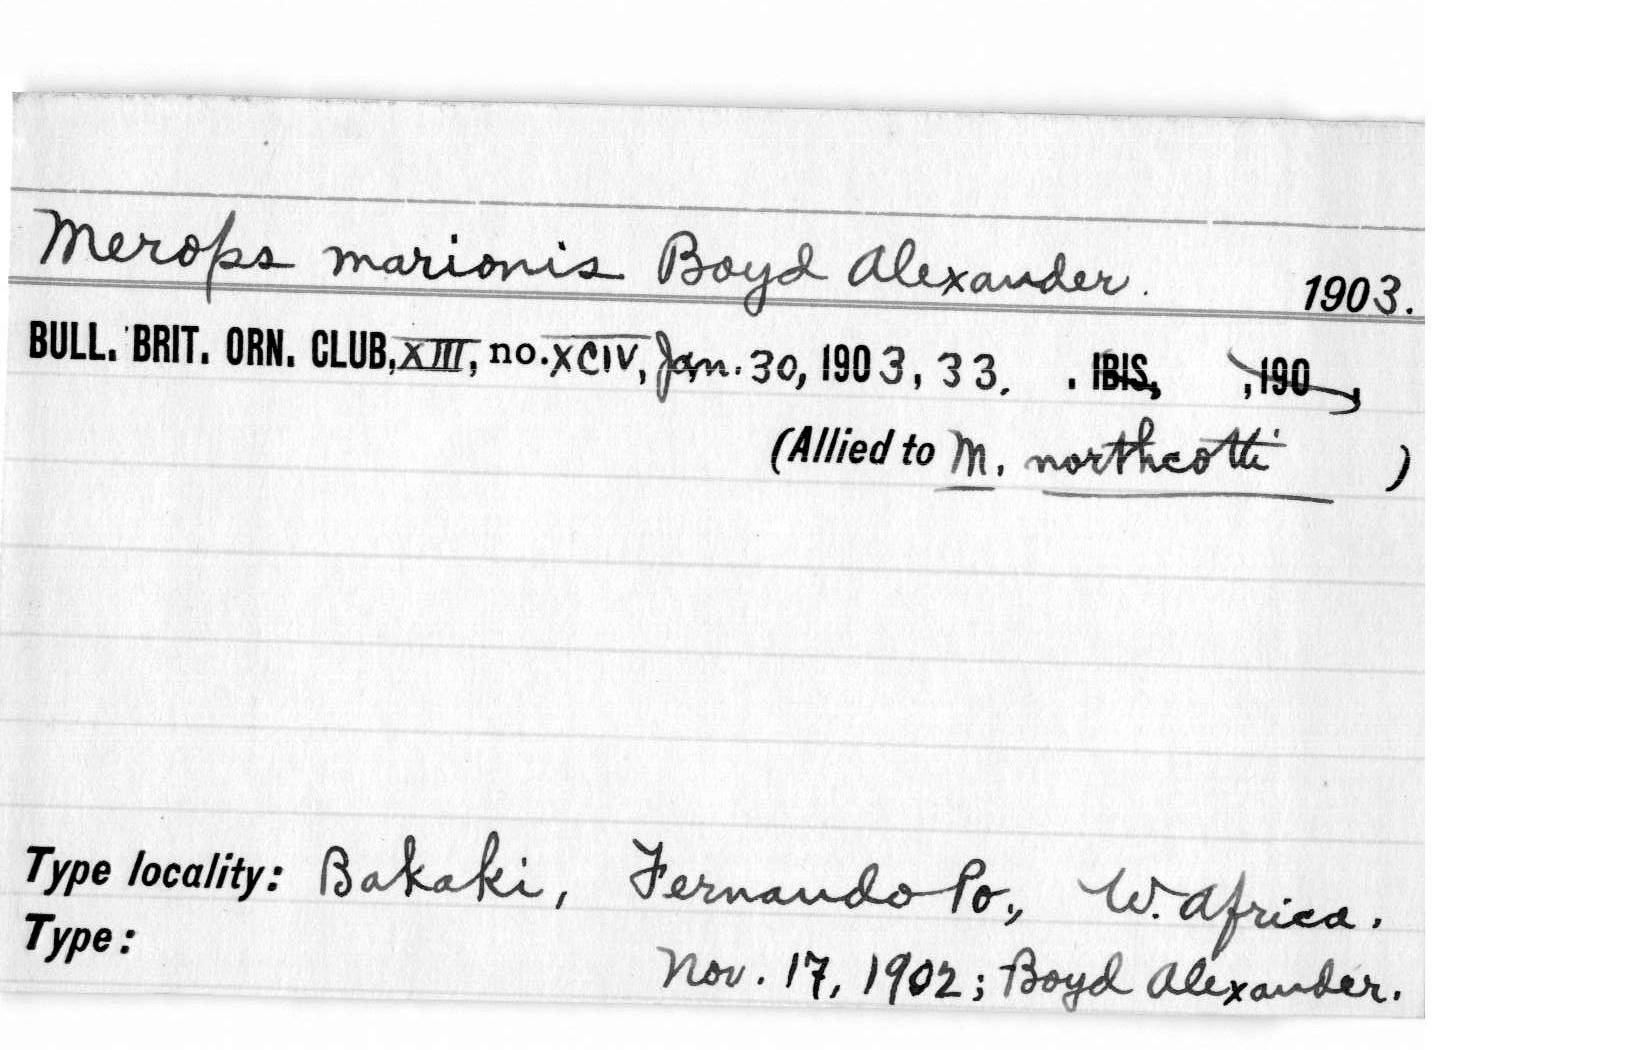 Merops marionis Boyd Alexander. 1903.
BULL. BRIT. ORN. CLUB, XIII, no. XCIV, Jan. 30, 1903, 33. . IBIS, ,190 ,
(Allied to M. northcotti )
Type locality: Bakaki, Fernando Po., W. Africa.
Type:
Nov. 17, 1902; Boyd Alexander.